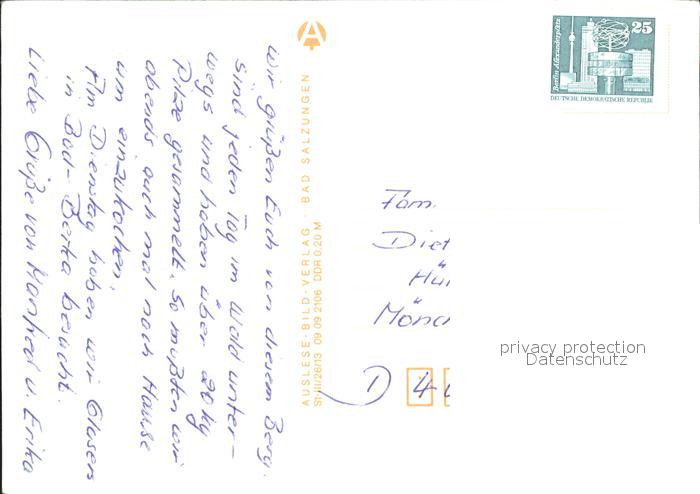 Wir grüßen Euch von diesem Berg.
Sind jeden Tag im Wald unter-
wegs und haben über 20 kg
Pilze gesammelt. So mußten wir
abends auch mal nach Hause
um einzukochen.
Am Dienstag haben wir Glasers
in Bad-Berka besucht.
Liebe Grüße von Manfred u. Erika
AUSLESE-BILD-VERLAG · BAD SALZUNGEN
St-III/26/13 09 09 2106 DDR 0,20 M
Berlin Alexanderplatz
25
DEUTSCHE DEMOKRATISCHE REPUBLIK
Fam.
D
privacy protection
Datenschutz